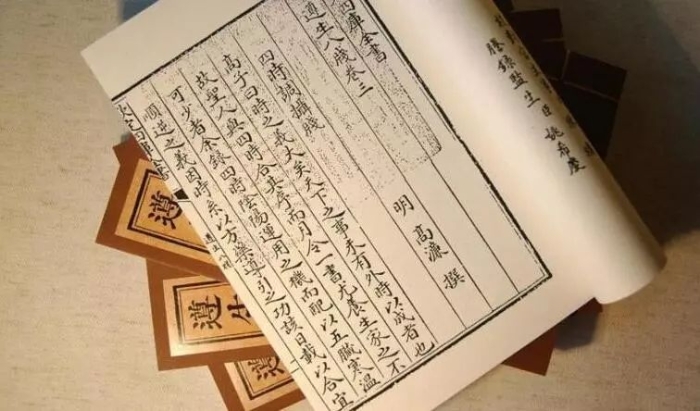 謄錄監生臣姚希慶
四庫全書
遵生八牋卷三
明 高濂 撰
四時調攝牋
高子曰時之義大矣天下之事未有外時以成者也
故聖人與四時合其序而月令一書尤養生家之不
可少者余錄四時陰陽運用之機而配以五臟寒溫
順逆之義因時系以方藥導引之功該日載以合宜
遵
遵生
遵